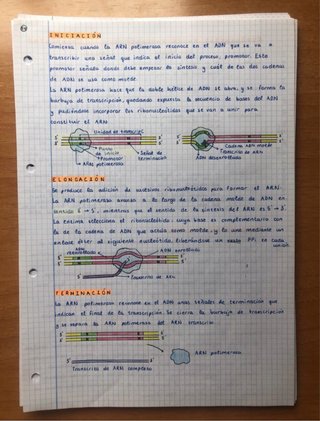 INICIACIÓN
Comienza cuando la ARN polimerasa reconoce en el ADN que se va a
transcribir una señal que indica el inicio del proceso, promotor. Este
promotor señala donde debe empezar la síntesis y cuál de las dos cadenas
de ADN se usa como molde.
La ARN polimerasa hace que la doble hélice de ADN se abra, y se forma la
burbuja de transcripción, quedando expuesta la secuencia de bases del ADN
y pudiéndose incorporar los ribonucleótidos que se van a unir para
constituir el ARN.
Unidad de transcripc.
5' 3'
3' 5'
Punto
de inicio
Promotor
ARN polimerasa
Señal de
terminación
5' 3'
3' 5'
Cadena ADN molde
Transcrito de ARN
ADN desenrollado
ELONGACIÓN
Se produce la adición de sucesivos ribonucleótidos para formar el ARN.
La ARN polimerasa avanza a lo largo de la cadena molde de ADN en
sentido 3' → 5', mientras que el sentido de la síntesis del ARN es 5' → 3'.
La enzima selecciona el ribonucleótido cuya base es complementaria con
la de la cadena de ADN que actúa como molde, y lo une mediante un
enlace éster al siguiente nucleótido, liberándose un resto PPi en cada
unión.
ADN
reenrollado
ADN enrollado
5' 3'
3' 5'
5'
Transcrito de ARN
TERMINACIÓN
La ARN polimerasa reconoce en el ADN unas señales de terminación que
indican el final de la transcripción. Se cierra la burbuja de transcripción
y se separa la ARN polimerasa del ARN transcrito.
5' 3'
3' 5'
5' 3'
Transcrito de ARN completo
ARN polimerasa